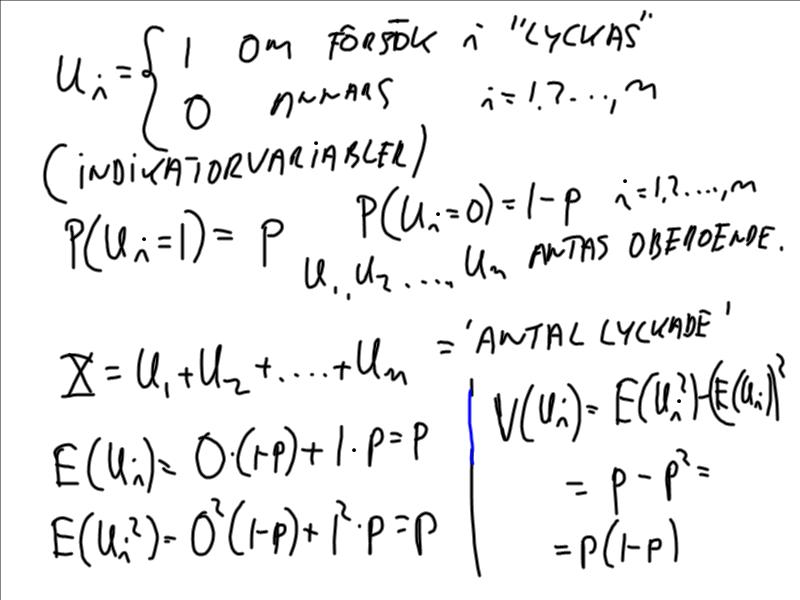 U_i = { 1 OM FÖRSÖK i "LYCKAS"
0 ANNARS i=1,2...,n
(INDIKATORVARIABLER)
P(U_i=1)= p P(U_i=0)=1-p i=1,2....,n
U_1,U_2....,U_n ANTAS OBEROENDE.
X=U_1+U_2+....+U_n = 'ANTAL LYCKADE'
E(U_i)= 0·(1-p)+1·p=p
E(U_i^2)= 0^2(1-p)+1^2·p=p
V(U_i)= E(U_i^2)-(E(U_i))^2
= p-p^2=
=p(1-p)